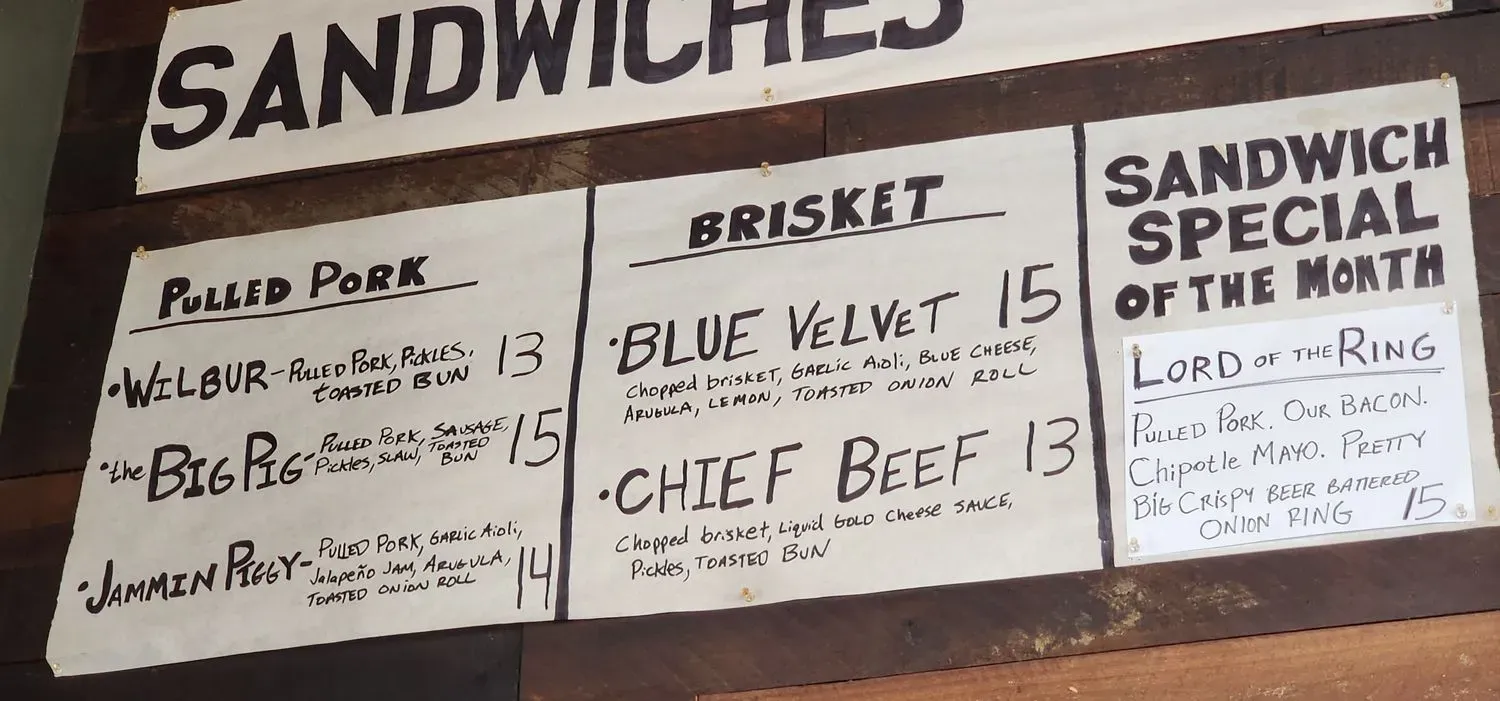 SANDWICHES
PULLED PORK
•WILBUR-PULLED PORK, PICKLES, 13
TOASTED BUN
•the BIG PIG-PULLED PORK, SAUSAGE, 15
Pickles, SLAW, TOASTED
BUN
•JAMMIN PIGGY-PULLED PORK, GARLIC Aioli, 14
Jalapeño JAM, ARUGULA,
TOASTED ONION ROLL
BRISKET
•BLUE VELVET 15
Chopped brisket, GARLIC Aioli, BLUE CHEESE,
ARUGULA, LEMON, TOASTED ONION ROLL
•CHIEF BEEF 13
Chopped brisket, Liquid GOLD Cheese SAUCE,
Pickles, TOASTED BUN
SANDWICH
SPECIAL
OF THE MONTH
LORD OF THE RING
PULLED PORK. OUR BACON.
Chipotle MAYO. PRETTY
BIG CRISPY BEER BATTERED
ONION RING 15